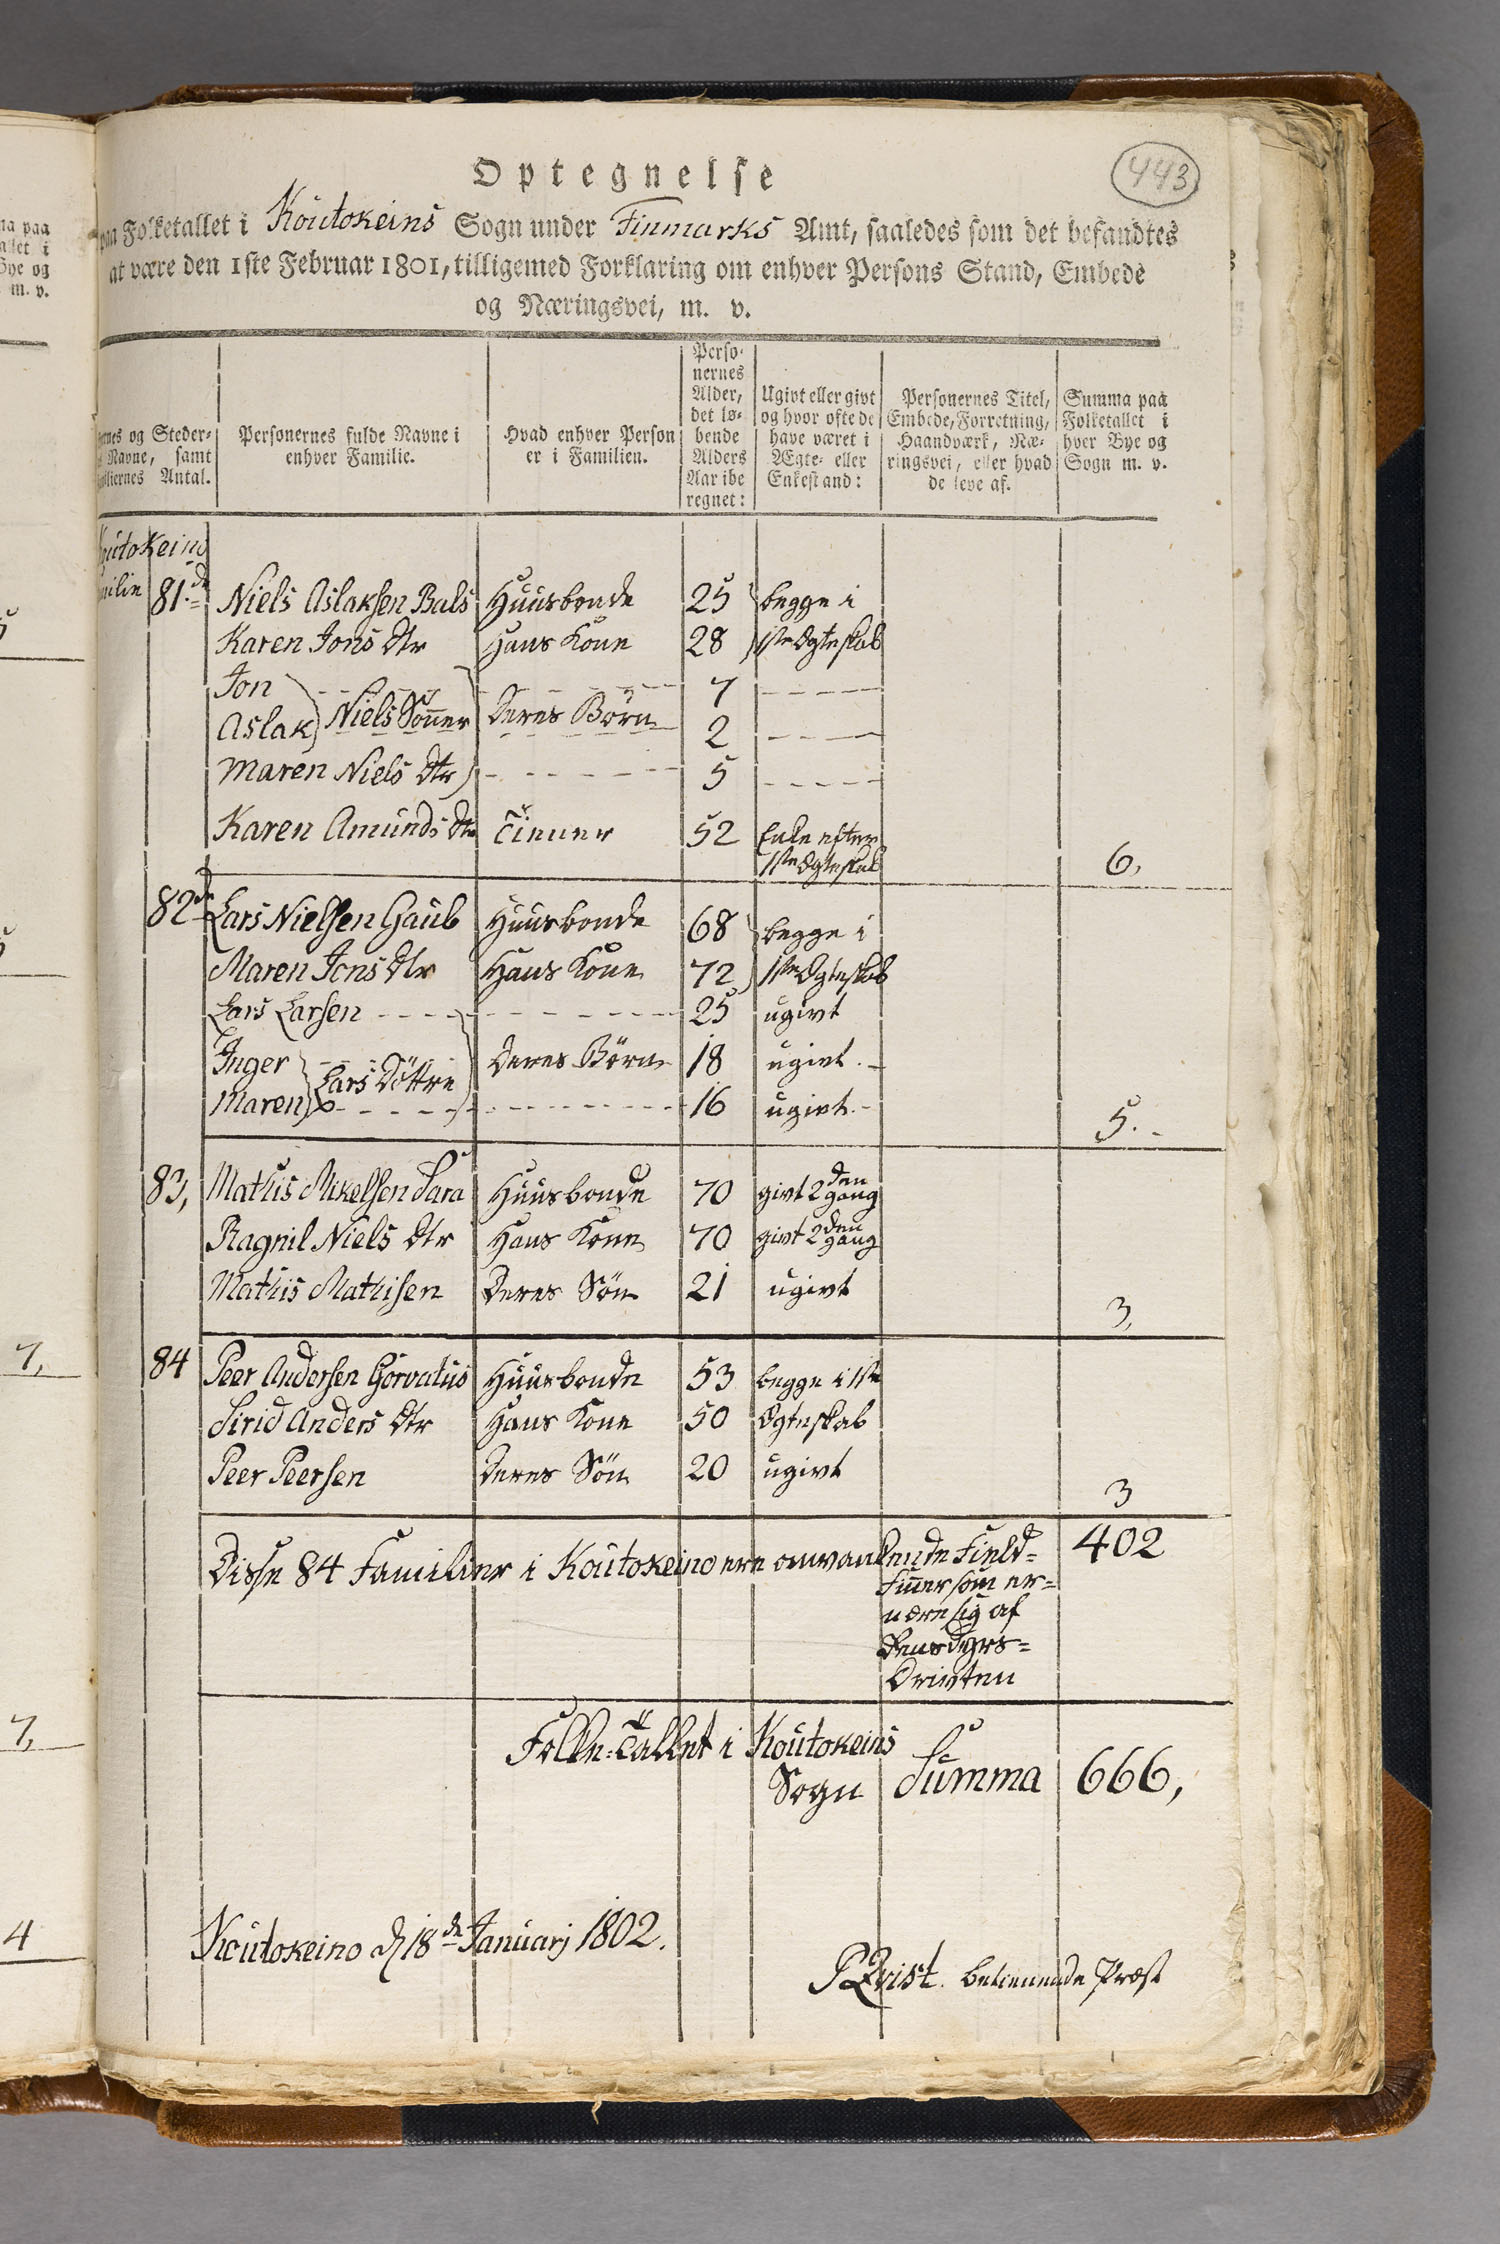 443
Optegnelse
paa Folketallet i Koutokeins Sogn under Finmarks Amt, saaledes som det befandtes
at være den 1ste Februar 1801, tilligemed Forklaring om enhver Persons Stand, Embede
og Næringsvei, m. v.
ernes og Steder-
Navne, samt
iliernes Antal.
Personernes fulde Navne i
enhver Familie.
Hvad enhver Person
er i Familien.
Perso-
nernes
Alder,
det lø-
bende
Alders
Aar ibe
regnet:
Ugivt eller givt
og hvor ofte de
have været i
Ægte- eller
Enkestand:
Personernes Titel,
Embede, Forretning,
Haandværk, Næ-
ringsvei, eller hvad
de leve af.
Summa paa
Folketallet i
hver Bye og
Sogn m. v.
Koutokeino
Familie 81.de Niels Aslaksen Bals Huusbonde 25 begge i
Karen Jons Dtr Hans Kone 28 1ste Ægteskab
Jon 7
Aslak Niels Sønner Deres Børn 2
Maren Niels Dtr 5
Karen Amunds Dtr Tiener 52 Enke efter
1ste Ægteskab 6,
82de Lars Nielsen Gaub Huusbonde 68 begge i
Maren Jons Dtr Hans Kone 72 1ste Ægteskab
Lars Larsen 25 ugivt
Inger Lars Döttre Deres Börn 18 ugivt
Maren 16 ugivt
5.
83, Mathis Mikelsen Sara Huusbonde 70 givt 2den gang
Ragnil Niels Dtr Hans Kone 70 givt 2den gang
Mathis Mathisen Deres Sön 21 ugivt
3,
84 Peer Andersen Gorvatus Huusbonde 53 begge i 1ste
Sirid Anders Dtr Hans Kone 50 Ægteskab
Peer Peersen Deres Sön 20 ugivt
3
Disse 84 Familier i Koutokeino ere omvankende Field- 402
Finner som er-
nære sig af
Rensdyrs-
Drivten
Folke-Tallet i Koutokeins
Sogn Summa 666,
Koutokeino d 18de Januarj 1802.
P Qvist. betienende Præst
7,
7,
4